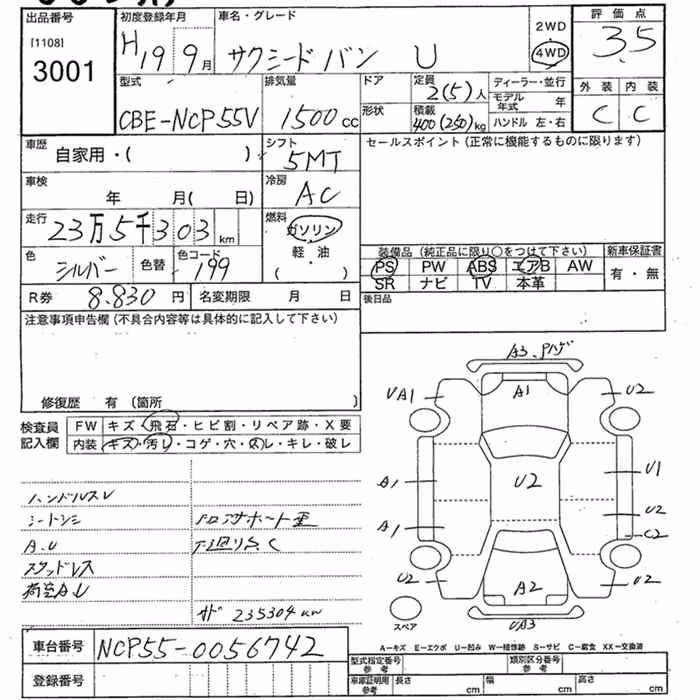 出品番号 初度登録年月 車名・グレード 2WD 評価点
[1108] H19 9月 サクシード バン U 4WD 3.5
3001
型式 排気量 ドア 定員 ディーラー・並行 外装 内装
2(5)人 モデル年式 年
CBE-NCP55V 1500cc 形状 積載 400(250)kg ハンドル 左・右 C C
車歴 シフト セールスポイント(正常に機能するものに限ります)
自家用・( ) 5MT
車検 冷房
年 月( 日) AC
走行 燃料
23万5千303km ガソリン
色 色替 色コード 軽・油 装備品(純正品に限り○をつけて下さい) 新車保証書
シルバー 199 ( ) PS PW ABS エアB AW 有・無
SR ナビ TV 本革
R券 8.830円 名変期限 月 日 後日品
注意事項申告欄(不具合内容等は具体的に記入して下さい)
修復歴 有(箇所 )
検査員記入欄 FW キズ・飛石・ヒビ割・リペア跡・X要
内装 キズ・汚レ・コゲ・穴・スレ・キレ・破レ
ハンドルスレ
シートシミ コアサポート歪
A.U 下廻りS.C
スタッドレス
荷室A U
235304km
A3
UA1 A1 U2
A1 U2 U1
A1 U2
C2
U2 A2 U2
スペア UA3
A－キズ E－エクボ U－凹み W－補修跡 S－サビ C－腐食 XX－交換済
車台番号 NCP55-0056742
型式指定番号 参考 類別区分番号 参考
登録番号 車庫証明用 参考 長さ cm 幅 cm 高さ cm